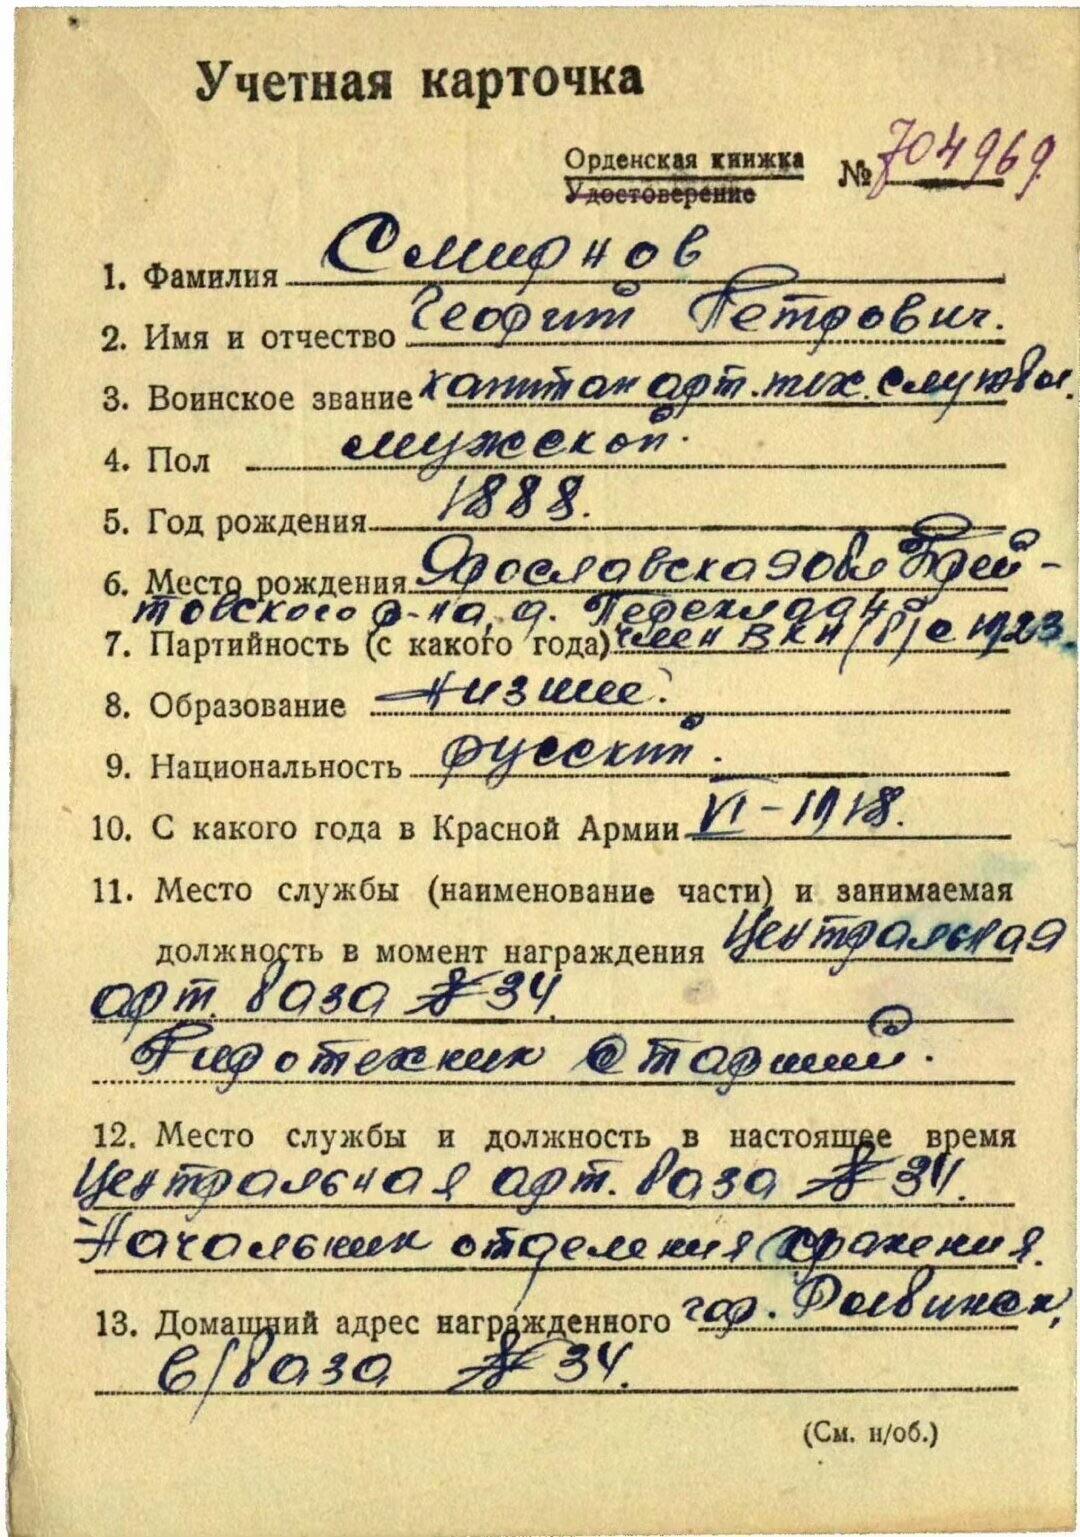 Учетная карточка
Орденская книжка № 704969
Удостоверение
1. Фамилия Смирнов
2. Имя и отчество Георгий Петрович.
3. Воинское звание капитан арт. тех. службы.
4. Пол мужской.
5. Год рождения 1888.
6. Место рождения Ярославская обл Брей-
товского р-на, д.
7. Партийность (с какого года) член ВКП/б/ с 1923.
8. Образование низшее.
9. Национальность русский.
10. С какого года в Красной Армии VI-1918.
11. Место службы (наименование части) и занимаемая
должность в момент награждения Центральная
арт. база № 34.
Пиротехник старший.
12. Место службы и должность в настоящее время
Центральная арт. база № 34.
Начальник отделения хранения.
13. Домашний адрес награжденного гор. Рыбинск,
в/база № 34.
(См. н/об.)